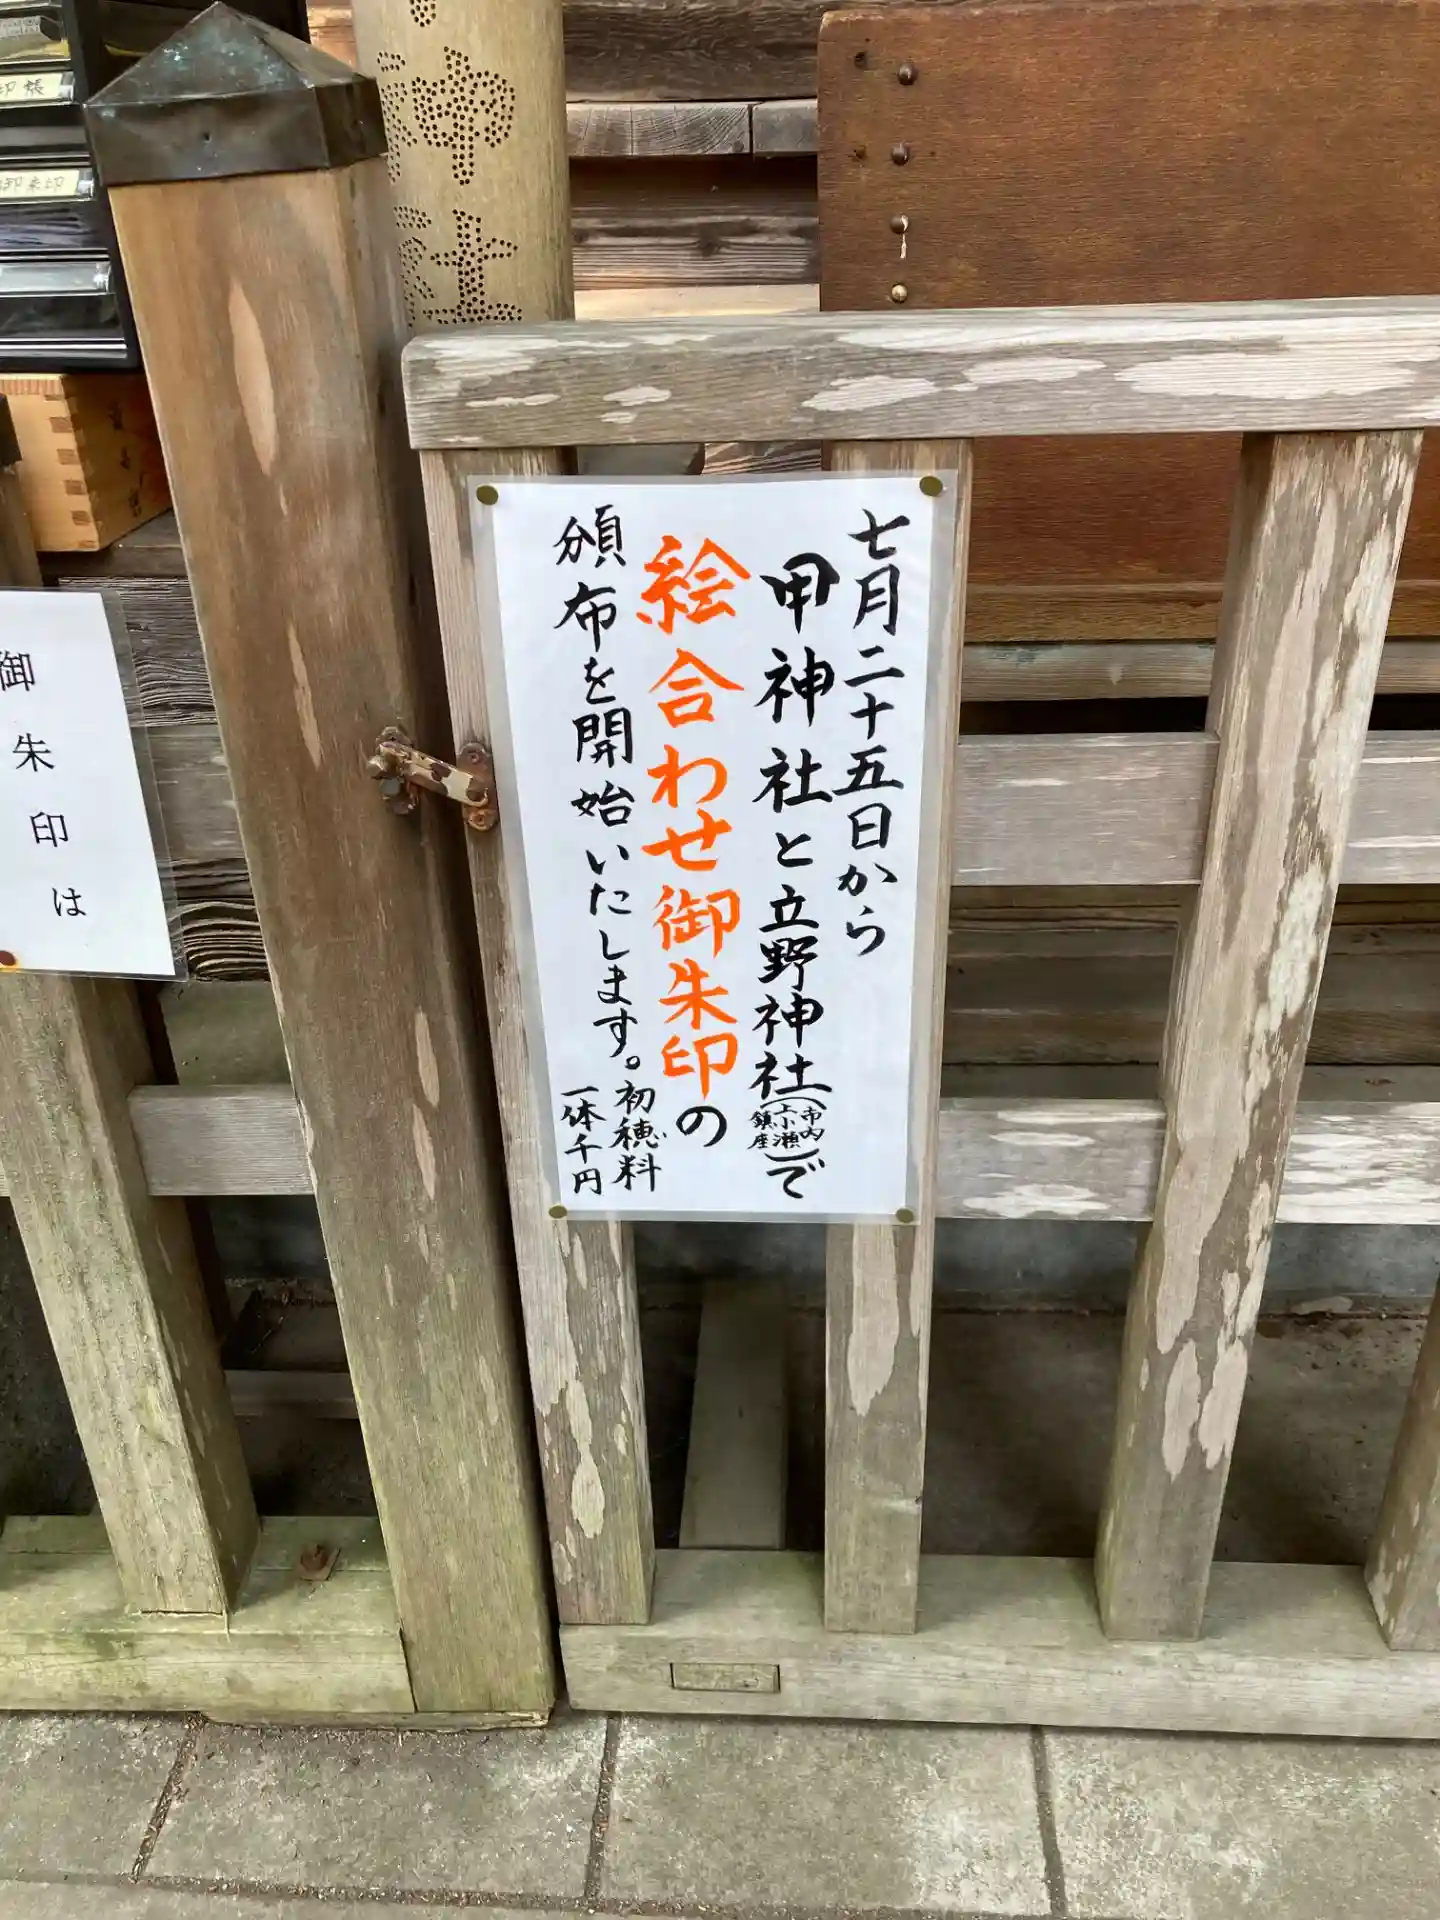 七月二十五日から
甲神社と立野神社(市内上小瀬鎮座)で
絵合わせ御朱印の
頒布を開始いたします。
初穂料
一体千円
御朱印は
印帳
御朱印
神
士